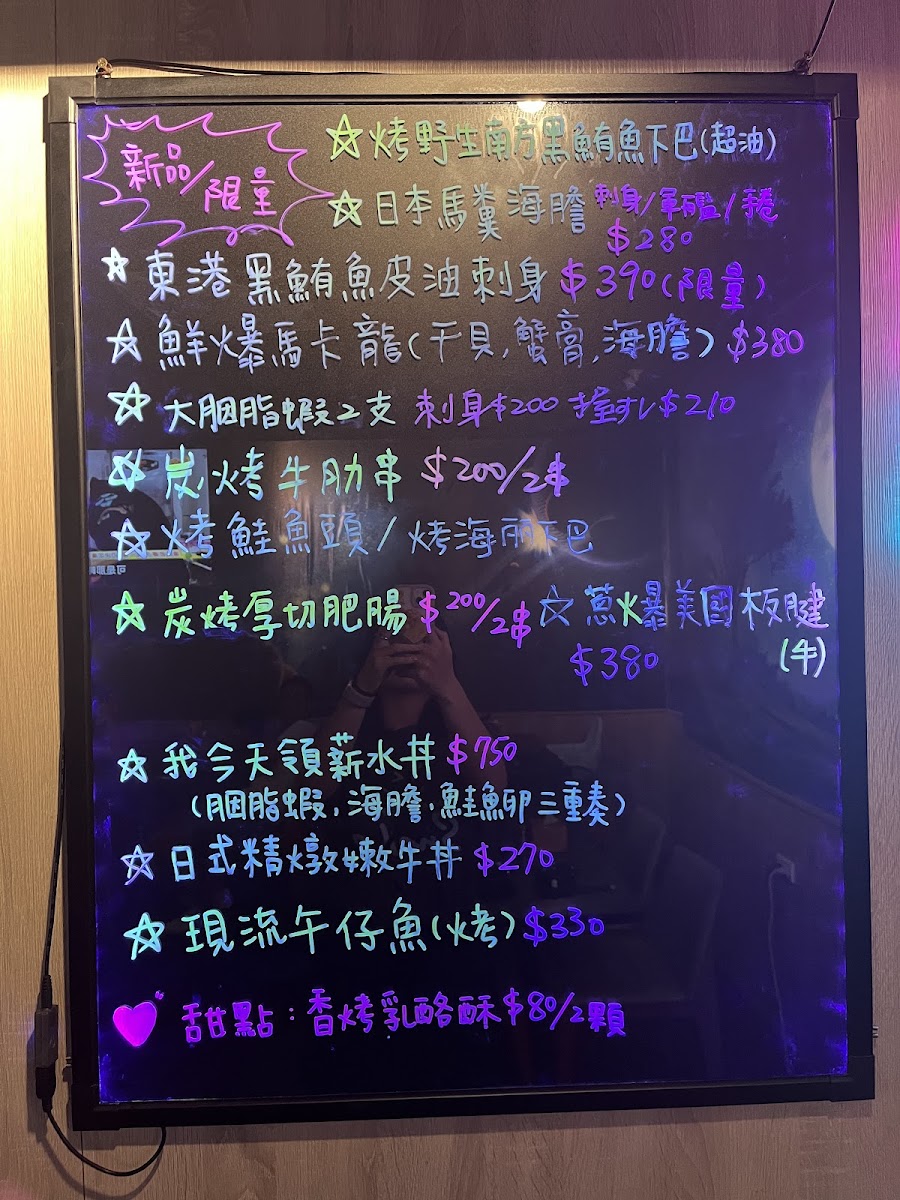 新品/限量
☆烤野生南方黑鮪魚下巴(超油)
☆日本馬糞海膽 刺身/軍艦/手卷
$280
☆東港黑鮪魚皮油刺身 $390(限量)
☆鮮爆馬卡龍(干貝,蟹膏,海膽) $380
☆大胭脂蝦2支 刺身$200 握すし$210
☆炭烤牛肋串 $200/2串
☆烤鮭魚頭/烤海鱺下巴
☆炭烤厚切肥腸 $200/2串 ☆蔥爆美國板腱
$380 (牛)
☆我今天領薪水丼 $750
(胭脂蝦,海膽,鮭魚卵三重奏)
☆日式精燉嫩牛丼 $270
☆現流午仔魚(烤) $330
♥甜點:香烤乳酪酥$80/2顆